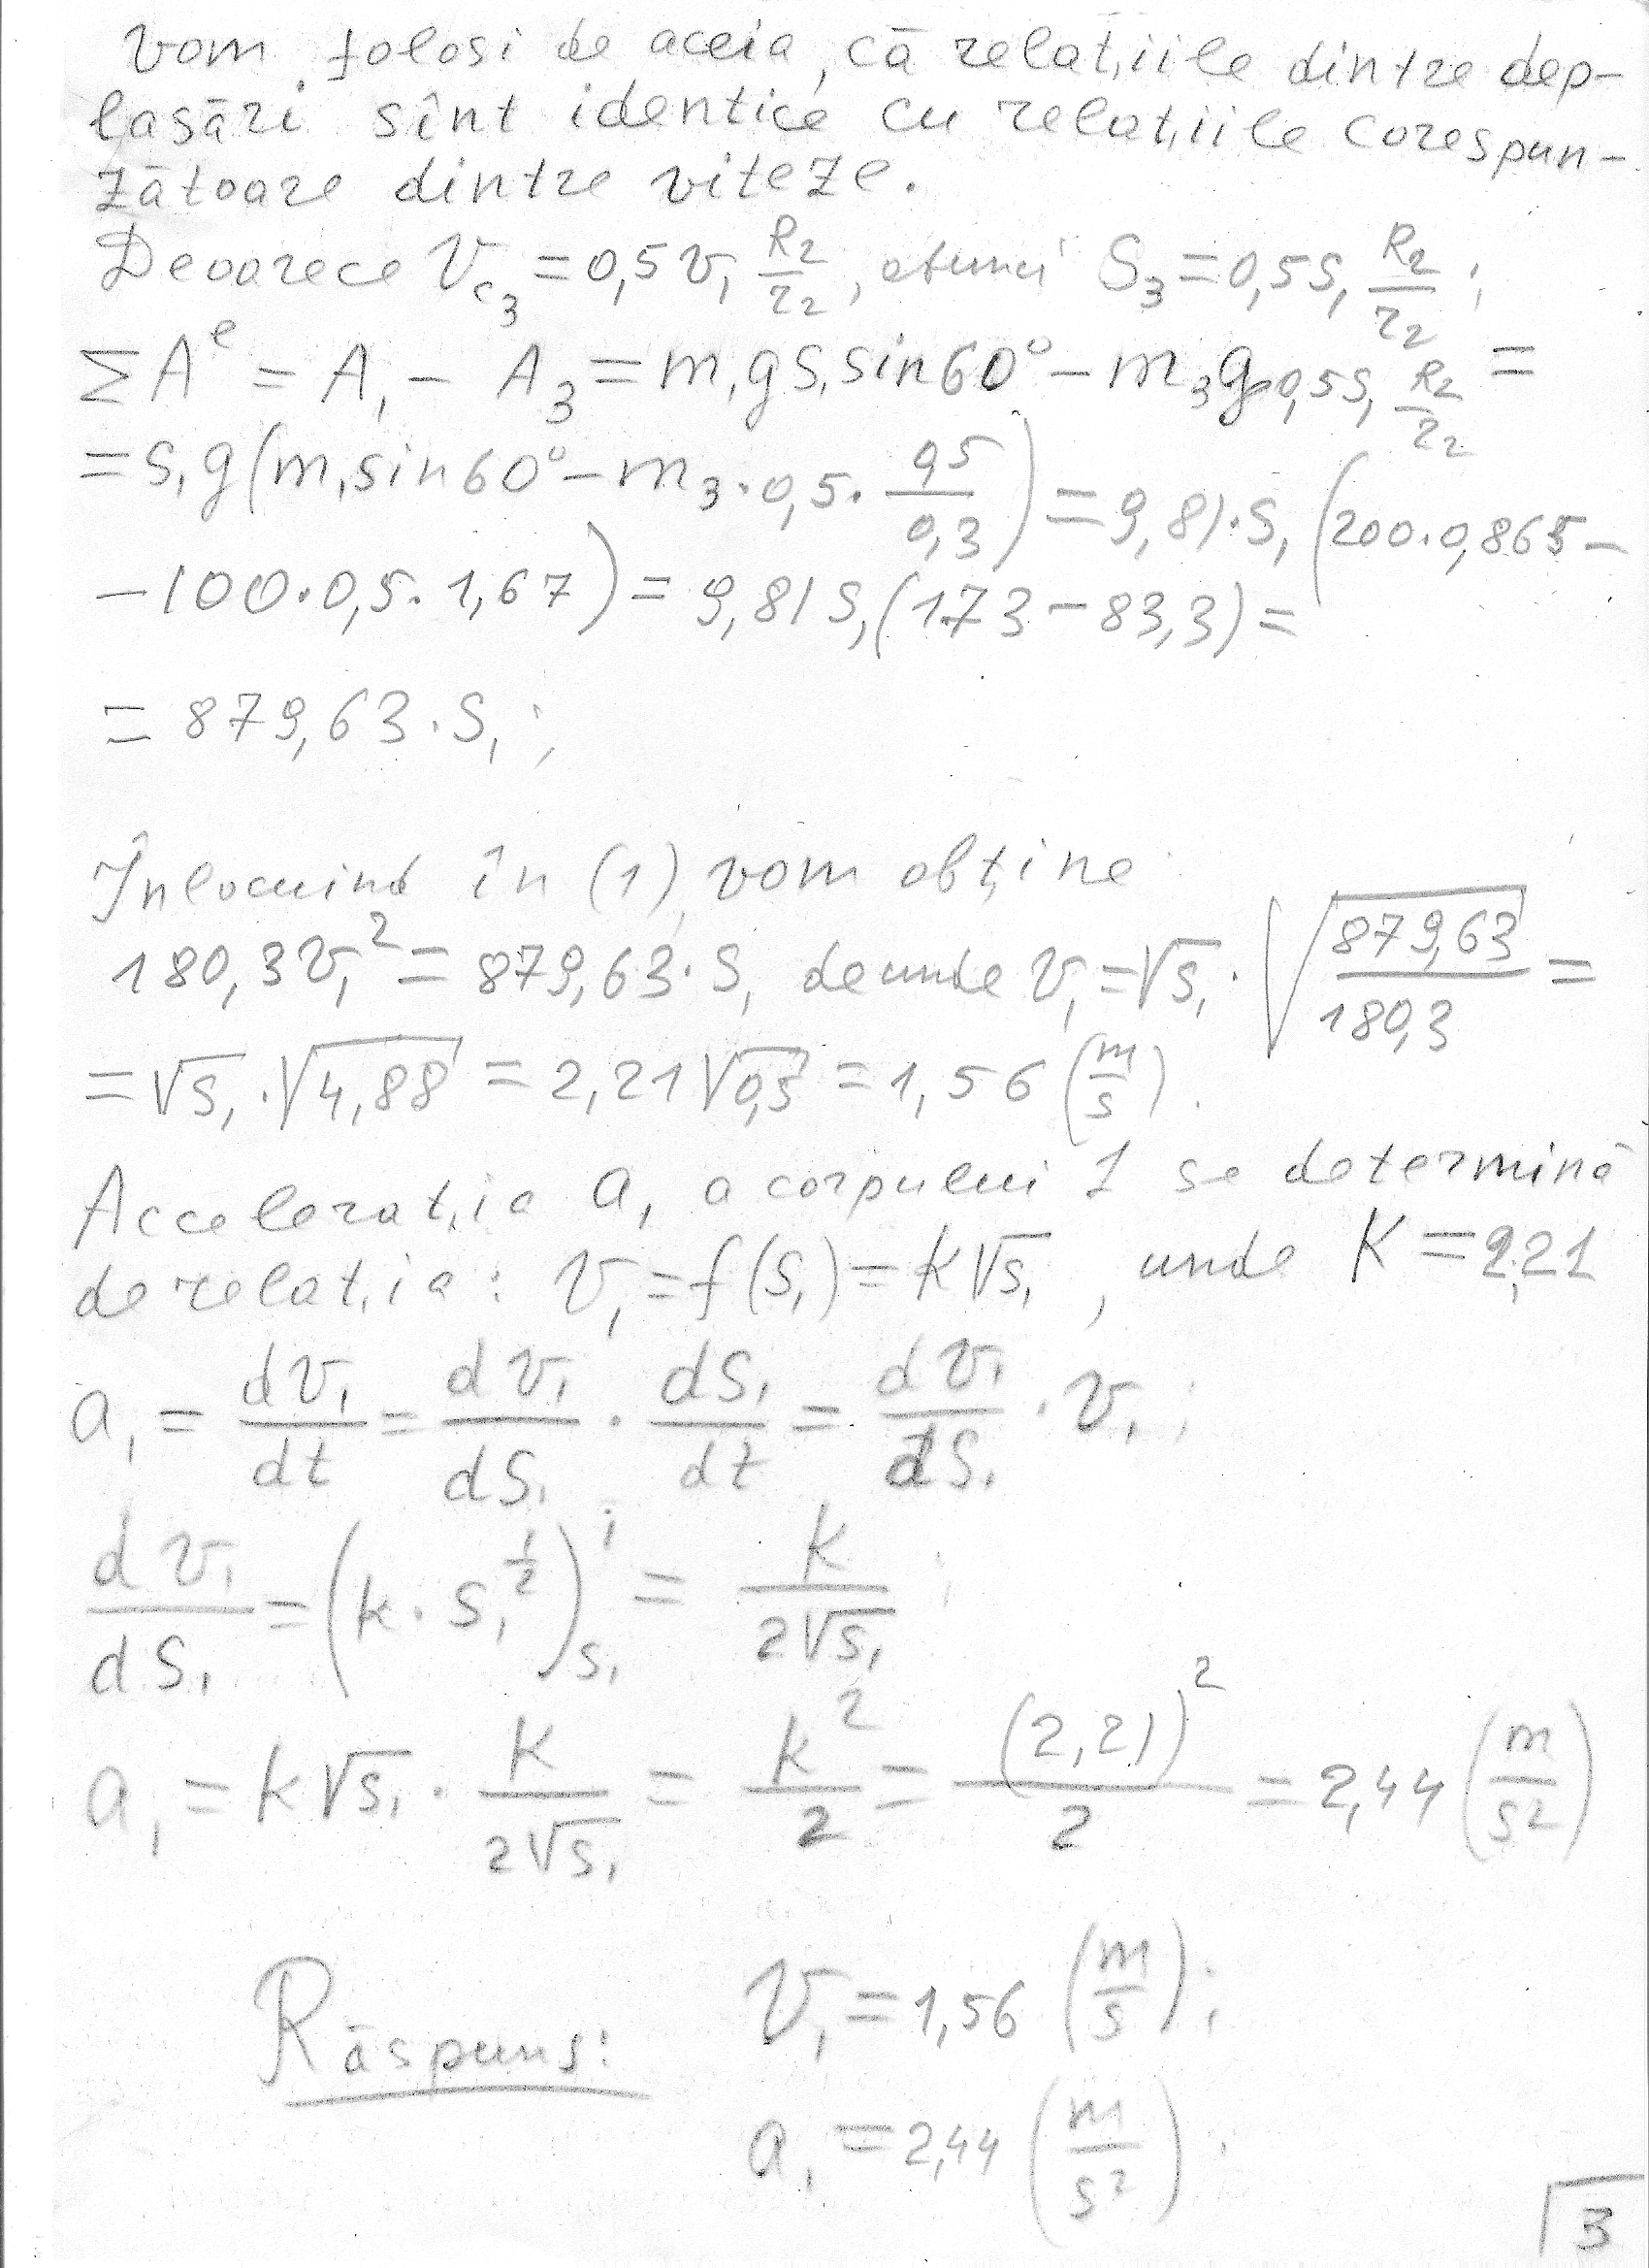 Vom folosi de aceia, că relațiile dintre dep-
lasări sînt identice cu relațiile corespun-
zătoare dintre viteze.
Deoarece V_c3 = 0,5 v₁ R₂/r₂, atunci S₃ = 0,5 S₁ R₂/r₂ ;
ΣAᵉ = A₁ − A₃ = m₁gS₁sin60° − m₃g·0,5S₁ R₂/r₂ =
= S₁g(m₁sin60° − m₃·0,5·0,5/0,3) = 9,81·S₁(200·0,865 −
− 100·0,5·1,67) = 9,81 S₁(173 − 83,3) =
= 879,63·S₁ ;
Înlocuind în (1), vom obține
180,3v₁² = 879,63·S₁ de unde v₁ = √S₁ · √(879,63/180,3) =
= √S₁ · √4,88 = 2,21√0,5 = 1,56 (m/s).
Accelerația a₁ a corpului 1 se determină
de relația: v₁ = f(S₁) = k√S₁ , unde K = 2,21
a₁ = dv₁/dt = dv₁/dS₁ · dS₁/dt = dv₁/dS₁ · v₁ ;
dv₁/dS₁ = (k·S₁^½)'_S₁ = k/2√S₁ ;
a₁ = k√S₁ · k/2√S₁ = k²/2 = (2,21)²/2 = 2,44 (m/s²)
Răspuns: V₁ = 1,56 (m/s);
a₁ = 2,44 (m/s²).
3